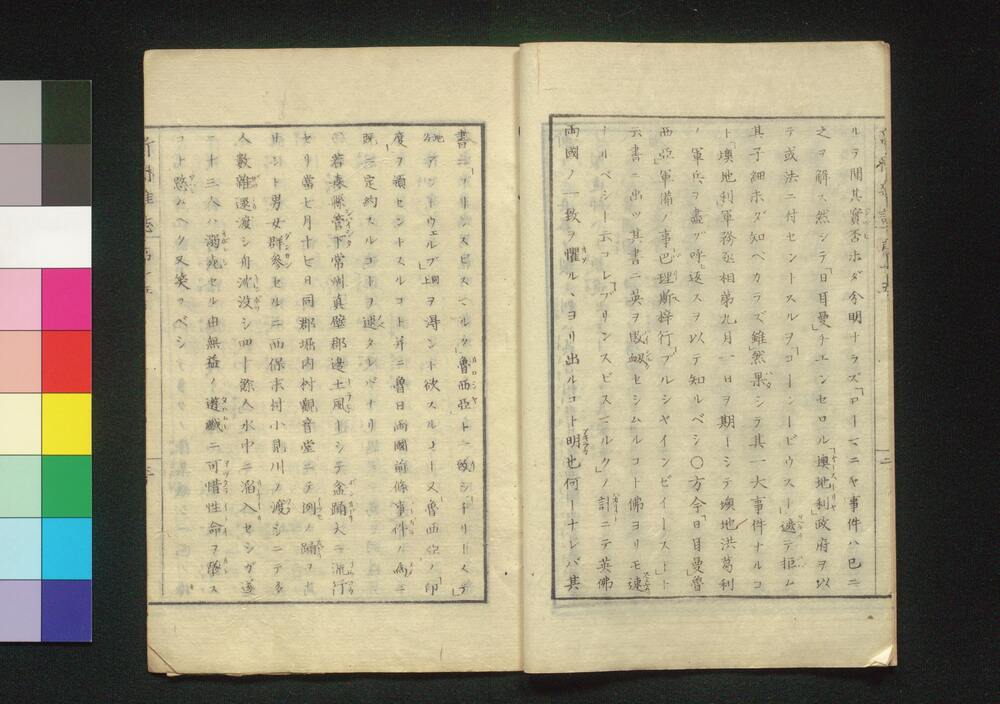 ルヲ聞其實否未ダ分明ナラズ「ローマニヤ事件ハ已ニ
之ヲ解ス然シテ「日耳曼」チエンセロル「墺地利」政府ヲ以
テ或法ニ付セントスルヲ「コーンービウスト」遮テ拒ム
其子細未ダ知ベカラズ雖然果シテ其一大事件ナルコ
ト「墺地利」軍務丞相第九月一日ヲ期ーシテ墺地洪葛利
ノ軍兵ヲ盡ク呼返スヲ以テ知ルベシ〇方今「日耳曼魯
西亞」軍備ノ事巴理斯梓行「プルシヤインゼイースト」ト
云書ニ出ツ其書ニ英ヲ敗衂セシムルコト佛ヨリモ速
ナリベシト云コレ「プリンスビスマルク」ノ討ニテ英佛
両國ノ一致ヲ懼ルヽヨリ出ルコト明也何トナレバ其
書ニ「プリンスビスマルク」魯西亞ト一致シ「トリースデ」
ヲ領セントスルコト并ニ魯日両國前條事件ノ為ニ
既ニ定約スルコトヲ述タレバナリ
〇若森縣管下常州真壁郡邊土風トシテ盆踊大ニ流行
セリ當七月十七日同郡堀内村観音堂ニテ例ノ踊ヲ
ント男女群参セルニ西保末村小見川ノ渡シニテ多
人數雜遝渡シ舟沈没シ四十餘人水中ニ溜入セシガ遂
ニ十三人ハ溺死セル由無益ノ遊戲ニ可惜性命ヲ殞ス
コト愍ムベク又笑フベシ
新聞雜誌